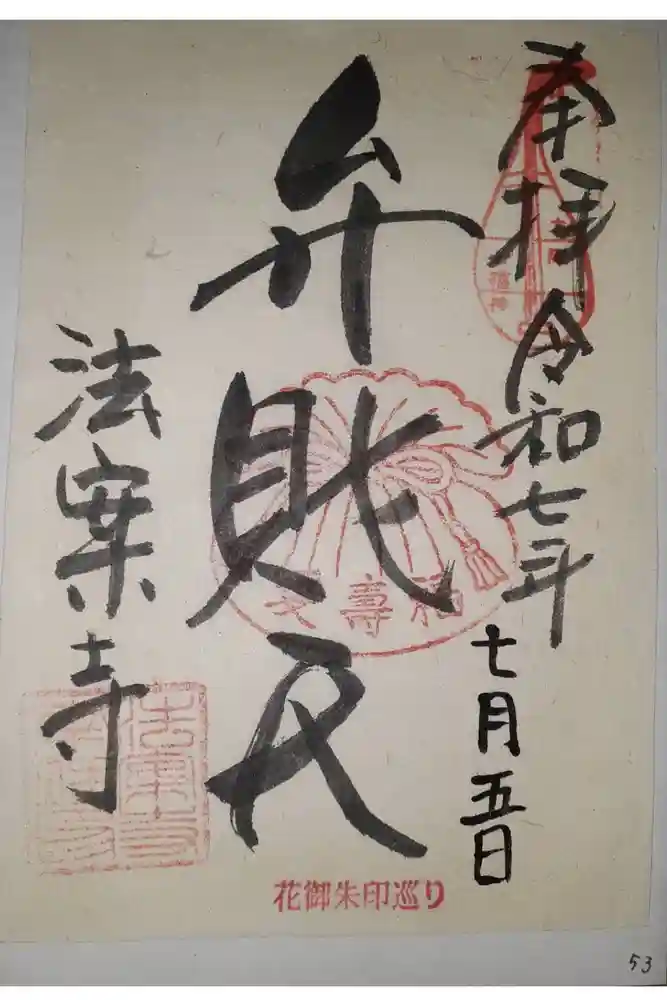 奉拝 令和七年
七月五日
弁財天
福壽
法案寺
花御朱印巡り
53